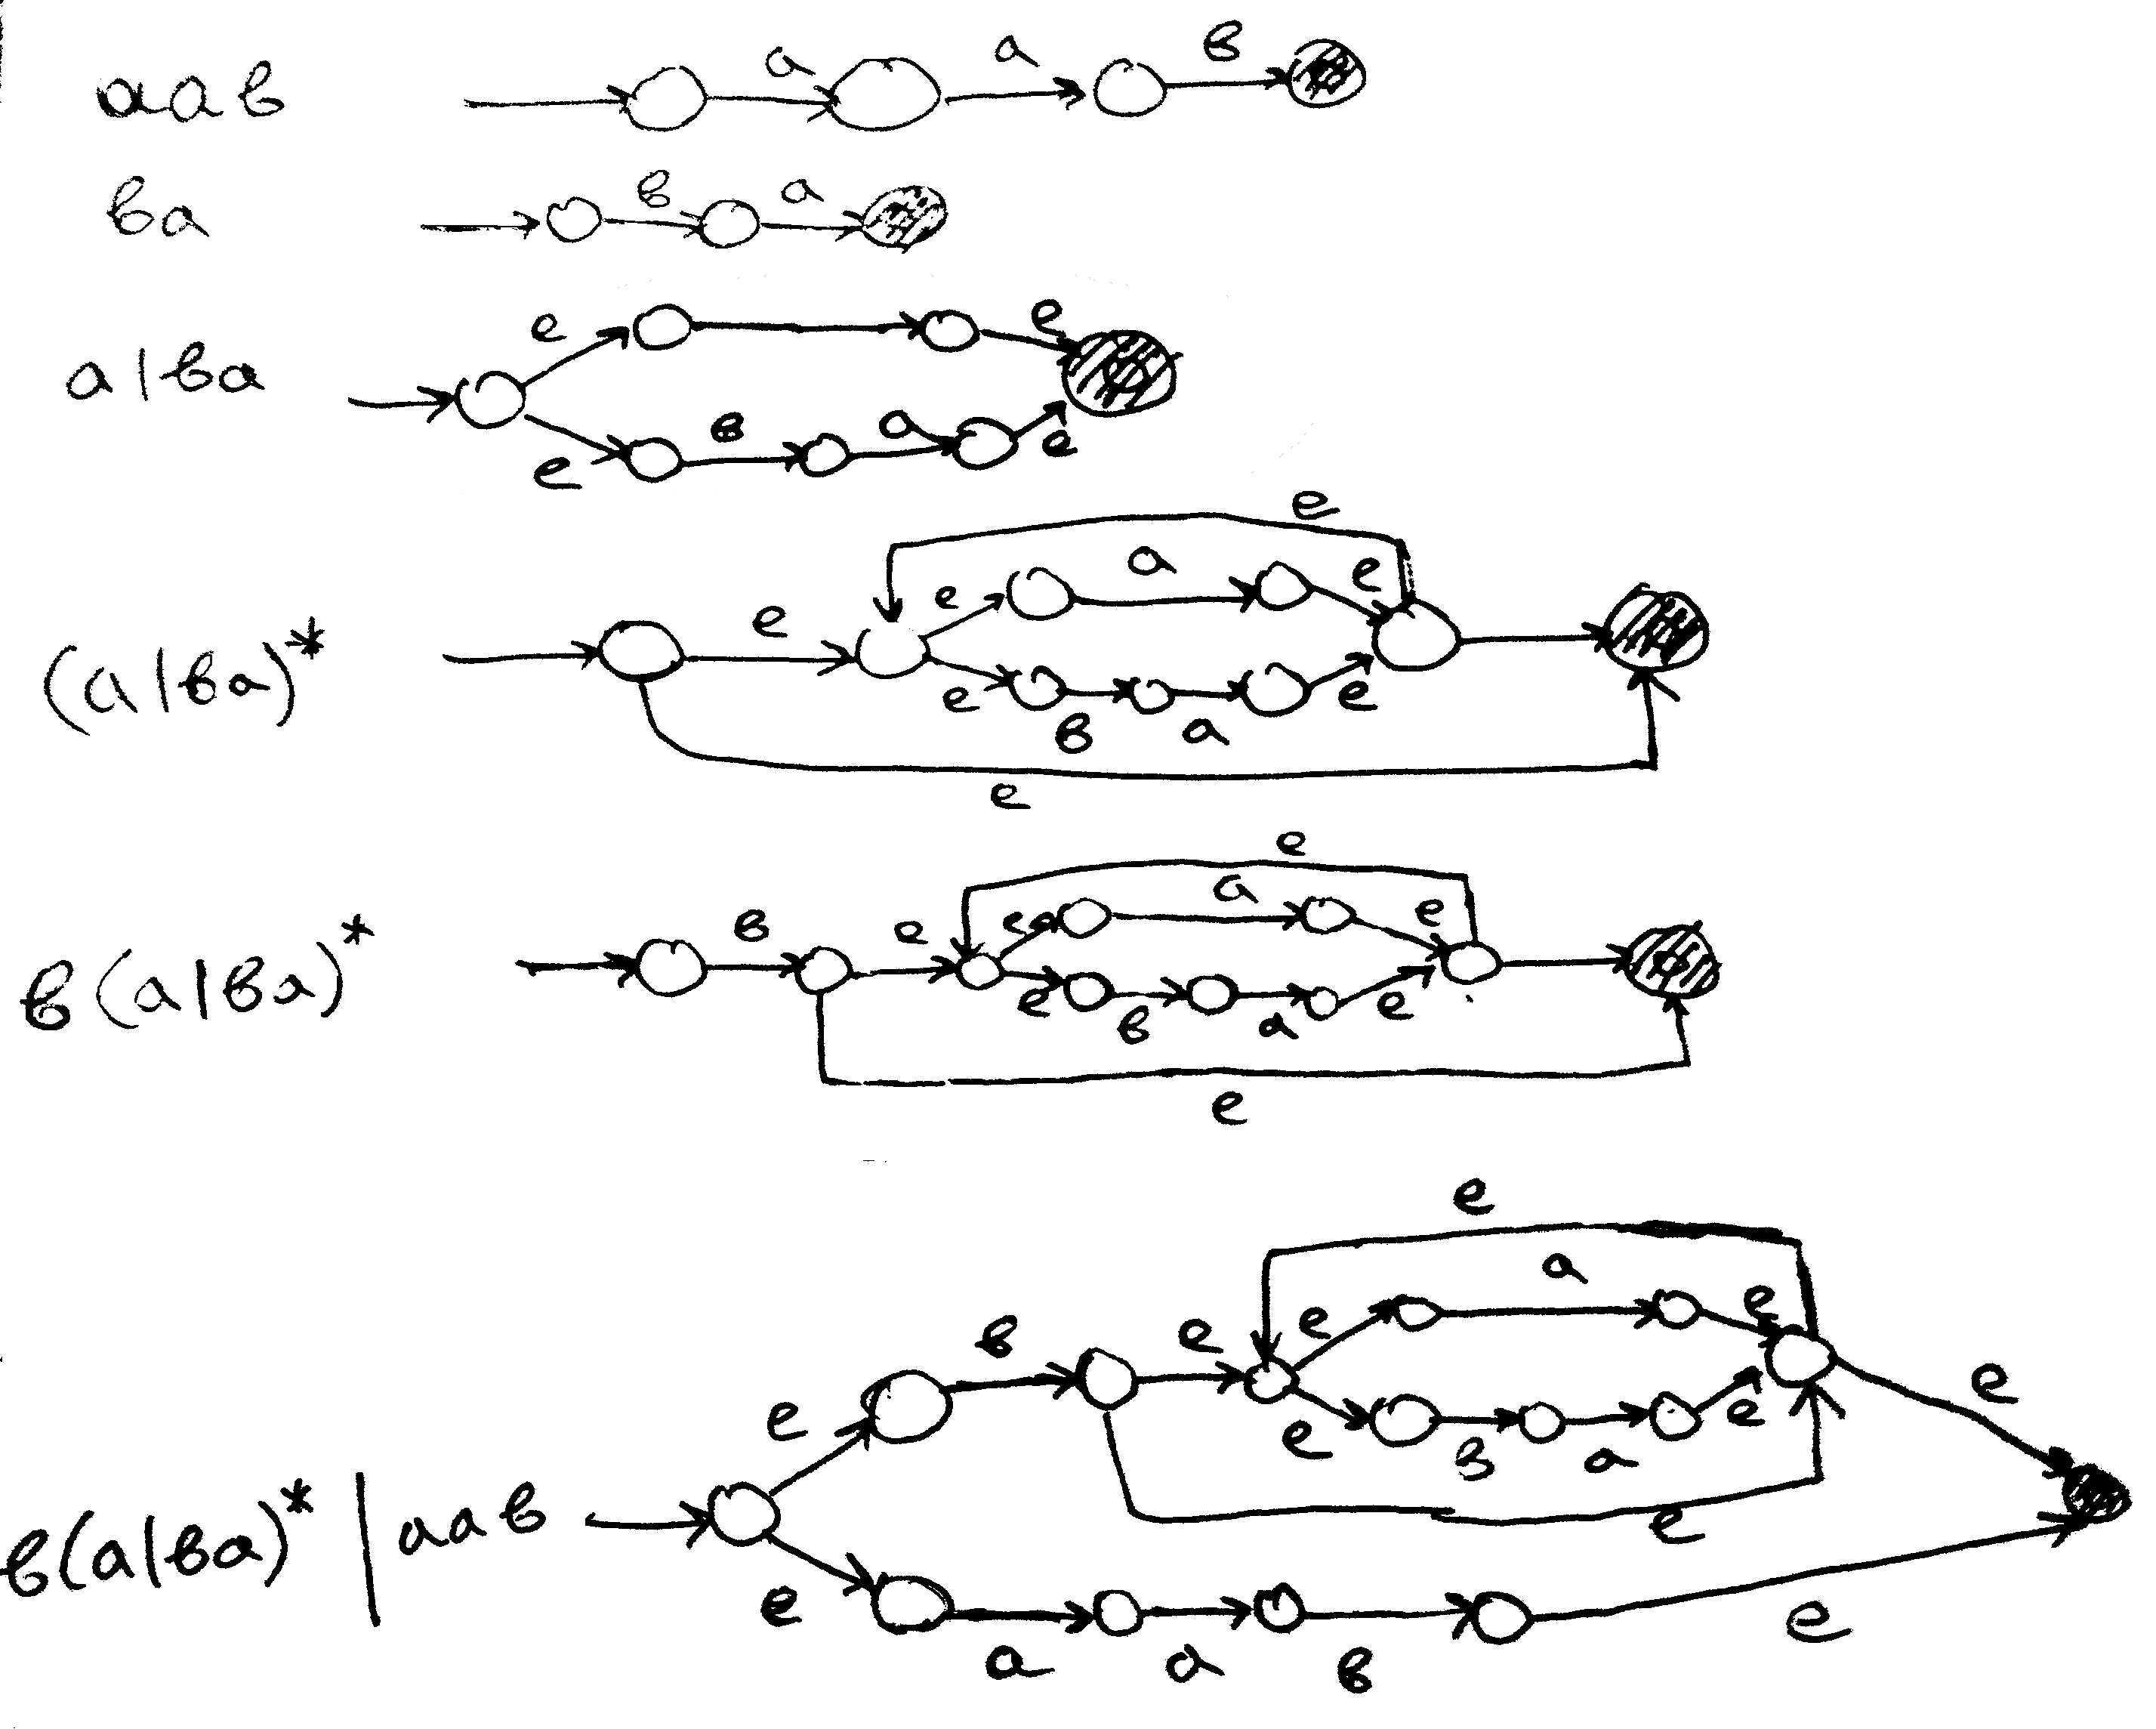 aab
a a b
ba
b a
a|ba
e e
b a
e e
(a|ba)*
e
e e a e
e b a e
e
b(a|ba)*
e
b e e a e
e b a e
e
b(a|ba)*|aab
e
e b e e a e e
e в a e
e
e a a b e